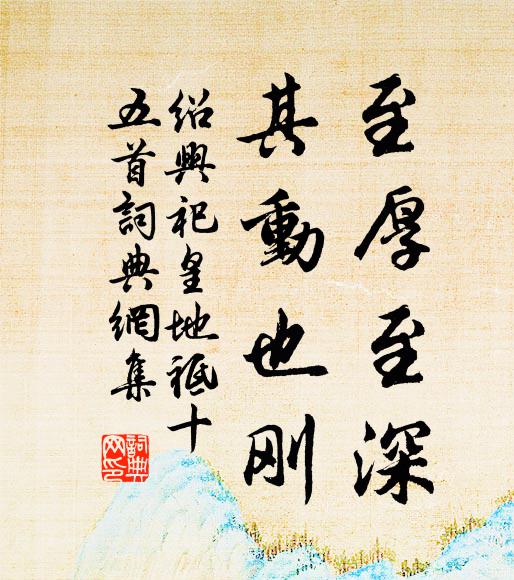 至厚至深
其動也刚
绍興祀皇地祇十
五首詞典網集
詞典
网印